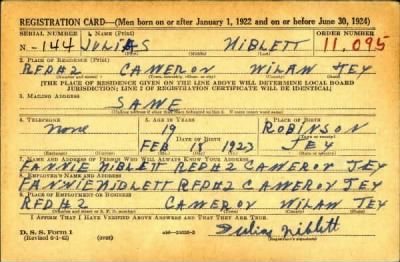 REGISTRATION CARD—(Men born on or after January 1, 1922 and on or before June 30, 1924)
SERIAL NUMBER 1. NAME (Print) ORDER NUMBER
N-144 JULIAS NIBLETT 11,095
(First) (Middle) (Last)
2. PLACE OF RESIDENCE (Print)
RFD#2 CAMERON MILAM TEX
(Number and street) (Town, township, village, or city) (County) (State)
[THE PLACE OF RESIDENCE GIVEN ON THE LINE ABOVE WILL DETERMINE LOCAL BOARD
JURISDICTION; LINE 2 OF REGISTRATION CERTIFICATE WILL BE IDENTICAL]
3. MAILING ADDRESS
SAME
4. TELEPHONE 5. AGE IN YEARS 6. PLACE OF BIRTH
none 19 ROBINSON
DATE OF BIRTH
FEB 18 1923 TEX
7. NAME AND ADDRESS OF PERSON WHO WILL ALWAYS KNOW YOUR ADDRESS
FANNIE NIBLETT RFD#2 CAMERON TEX
8. EMPLOYER'S NAME AND ADDRESS
FANNIE NIBLETT RFD#2 CAMERON TEX
9. PLACE OF EMPLOYMENT OR BUSINESS
RFD #2 CAMERON MILAM TEX
(Number and street or R. F. D. number) (Town) (County) (State)
I AFFIRM THAT I HAVE VERIFIED ABOVE ANSWERS AND THAT THEY ARE TRUE.
D. S. S. Form 1
(Revised 6-1-42) (over) Julias Niblett
(Registrant's signature)